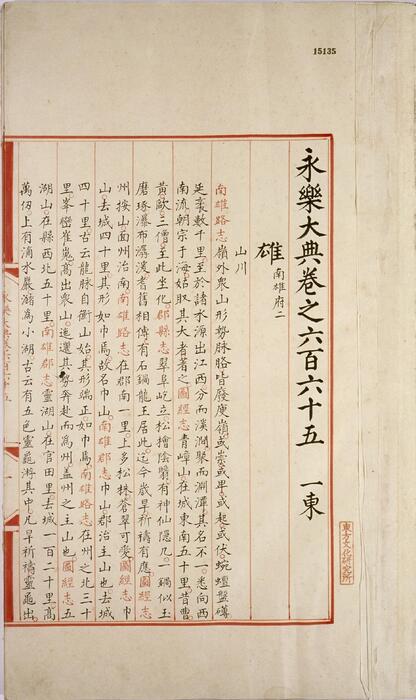 15135
永樂大典卷之六百六十五 一東
雄 南雄府二
山川
南雄路志嶺外衆山形勢脉胳皆廢庾嶺或崇或卑或起或伏蜿蟺盤礴
延袤數千里至於諸水源出江西分而溪澗聚而淵潭其名不一悉向西
南流朝宗于海姑取其大者著之圖經青嶂山在城東南五十里昔曹
黄歐三僧至此坐化郡縣志翠阜屹立松檜陰翳有神仙隱几一鍋似玉
磨琢瀑布潺湲耆舊相傳有石鍋龍王居此迄今歲旱祈禱有應圖經志
州按山面州治南南雄路志在郡南一里上多松株蒼翠可愛圖經志巾
山去城四十里其形如巾焉故名巾山南雄郡志巾山郡治主山也去城
四十里古云龍脉自衡山始其形端正如巾焉南雄路志在州之北三十
里峯巒崔嵬高出衆山迤邐其勢奔赴而爲州盖州之主山也圖經志五
湖山在縣西北五十里南雄郡志靈湖山在官田里去城一百二十里高
萬仞上有滴水巖瀦爲小湖古云有五色靈龜游其中凡旱祈禱靈龜出
東方文化研究所